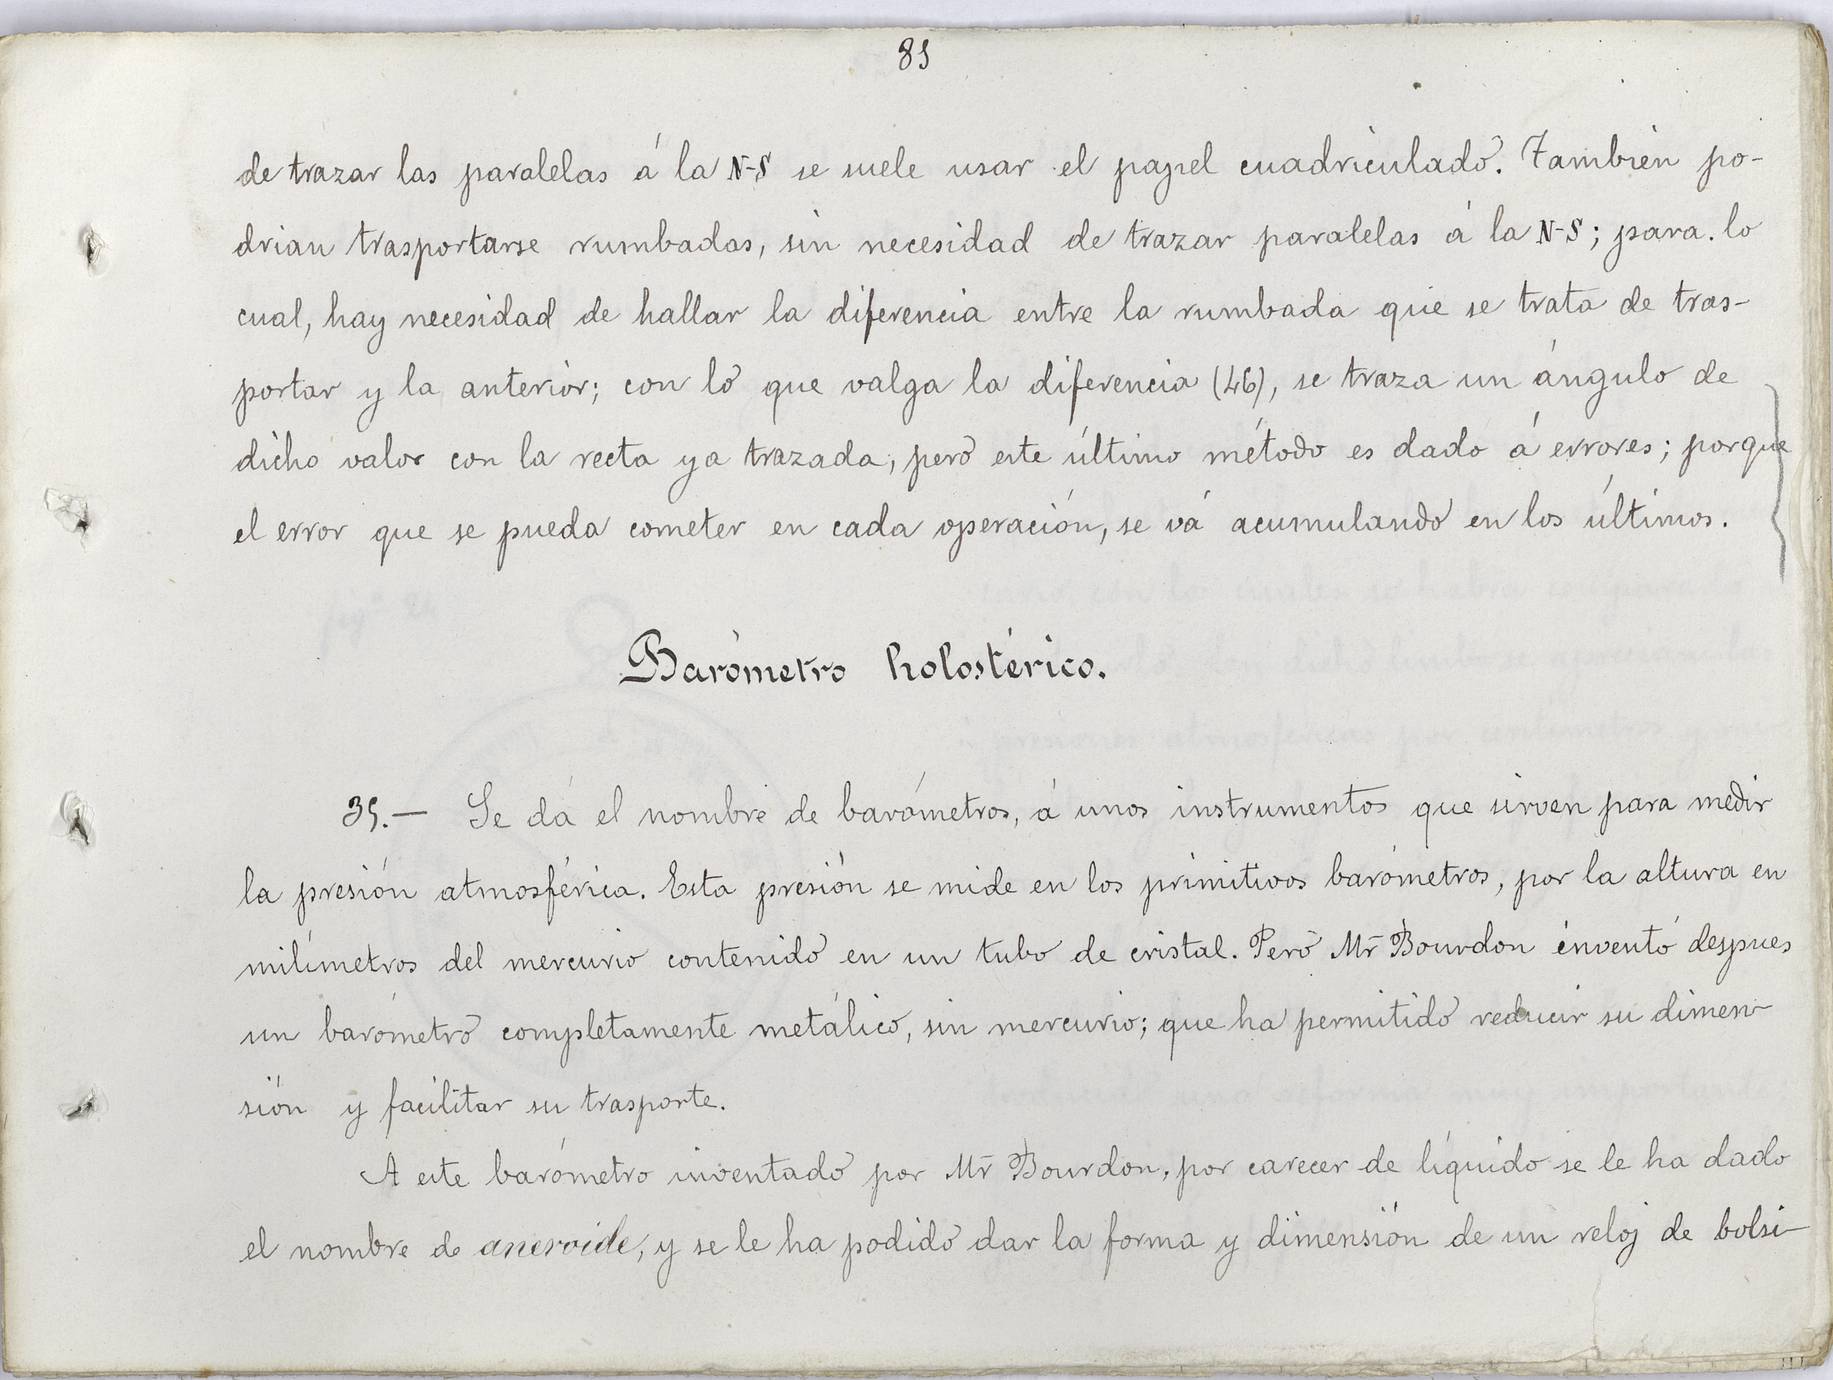 89
de trazar las paralelas á la N-S se suele usar el papel cuadriculado. También po-
drian trasportarse rumbadas, sin necesidad de trazar paralelas á la N-S; para lo
cual, hay necesidad de hallar la diferencia entre la rumbada que se trata de tras-
portar y la anterior; con lo que valga la diferencia (46), se traza un ángulo de
dicho valor con la recta ya trazada, pero este último método es dado á errores; porque
el error que se pueda cometer en cada operación, se vá acumulando en los últimos.
Barómetro holostérico.
39.— Se dá el nombre de barómetros, á unos instrumentos que sirven para medir
la presión atmosférica. Esta presión se mide en los primitivos barómetros, por la altura en
milímetros del mercurio contenido en un tubo de cristal. Pero Mr Bourdon inventó despues
un barómetro completamente metálico, sin mercurio; que ha permitido reducir su dimen-
sión y facilitar su trasporte.
A este barómetro inventado por Mr Bourdon, por carecer de líquido se le ha dado
el nombre de aneroide, y se le ha podido dar la forma y dimensión de un reloj de bolsi-